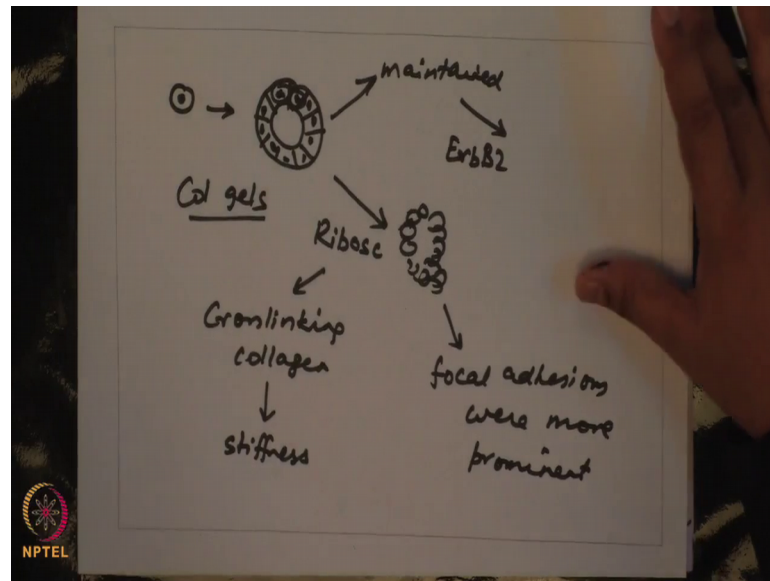 maintained
ErbB2
Col gels
Ribose
Crosslinking
collagen
stiffness
focal adhesions
were more
prominent
NPTEL